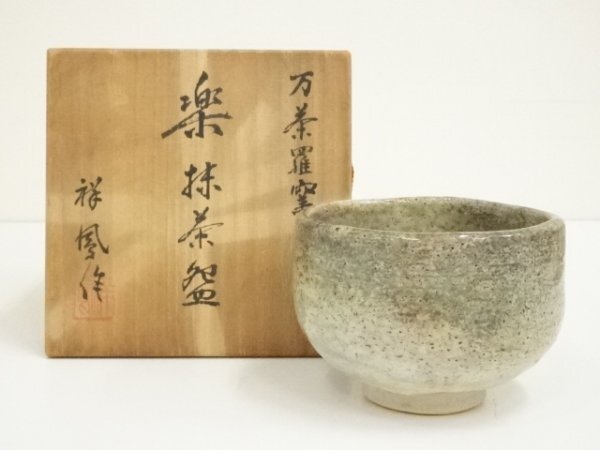 万茶羅窯
楽抹茶盌
祥鳳作